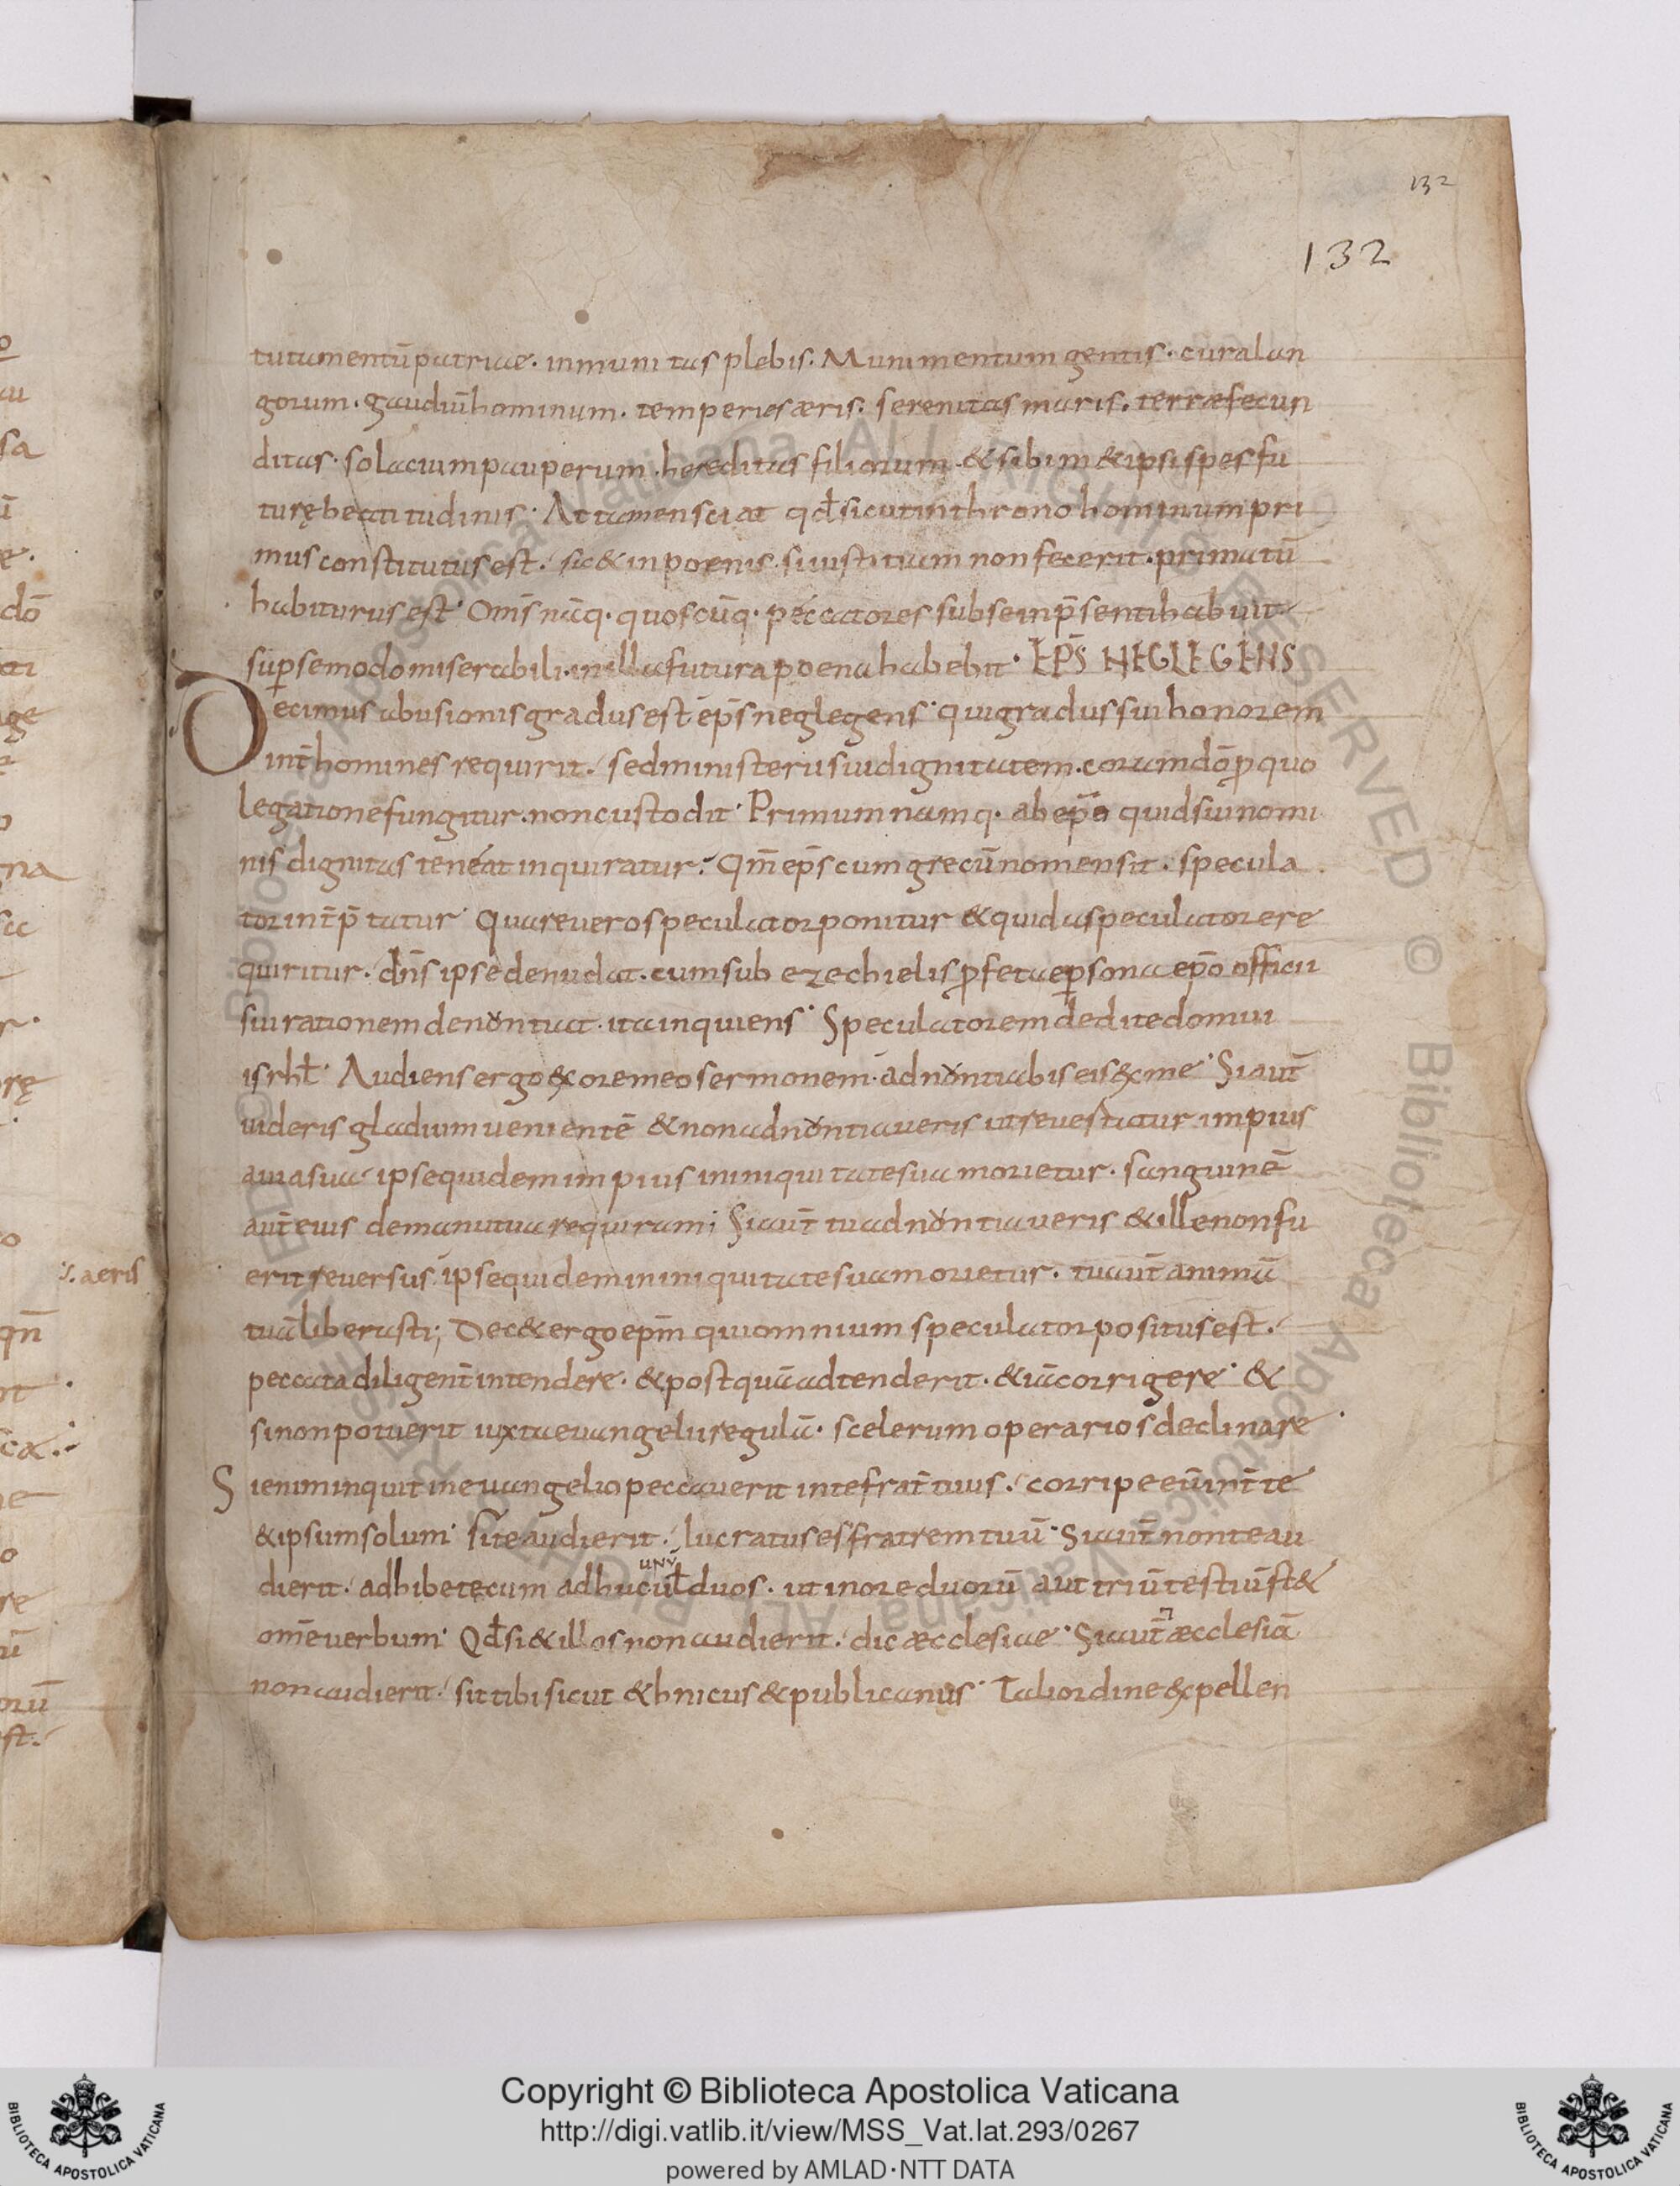 132
132
tutamentū patriae. inmunitas plebis. Munimentum gentis. cura lan
gorum. gaudiū hominum. temperies aeris. serenitas maris. terrae fecun
ditas. solacium pauperum. hereditas filiorum. & sibim&ipsi spes fu
turę beatitudinis. Attamen sciat qđ sicut in throno hominum pri
mus constitutus est. sic & in poenis. si iustitiam non fecerit. primatū
habiturus est. Om̄s nāq. quoscūq. peccatores sub se in p̄senti habuit
sup se modo miserabili. in illa futura poena habebit. EP̄S NEGLEGENS
Decimus abusionis gradus est ep̄s neglegens. qui gradus sui honorem
int̄ homines requirit. sed ministerii sui dignitatem. coram dō p quo
legatione fungitur. non custodit. Primum namq. ab ep̄o quid sui nomi
nis dignitas teneat inquiratur. Qm̄ ep̄s cum grecū nomen sit. specula
tor int̄p̄tatur. Quare vero speculator ponitur & quid a speculatore re
quiritur. dn̄s ipse denudat. cum sub ezechielis pfetae psona ep̄o officii
sui rationem denontiat. ita inquiens. Speculatorem dedi te domui
isrhł. Audiens ergo ex ore meo sermonem. adnontiabis eis ex me. Si aut̄
uideris gladium uenientē & non adnontiaueris ut reuertatur impius
a uia sua. ipse quidem impius in iniquitate sua morietur. sanguinē
aut̄ eius de manu tua requiram; Si aut̄ tu adnontiaueris & ille non fu
erit reuersus. ipse quidem in iniquitate sua morietur. tu aut̄ animā
tuā liberasti; Dec& ergo epm̄ qui omnium speculator positus est.
peccata diligent̄ intendere. & postquā adtenderit. & iā corrigere. &
si non potuerit iuxta euangelii regulā. scelerum operarios declinare.
Si enim inquit in euangelio peccauerit in te frat̄ tuus. corripe eū int̄ te
& ipsum solum. si te audierit. lucratus es fratrem tuū. Si aut̄ non te au
unū
dierit. adhibe tecum adhuc uł duos. ut in ore duorū aut triū testiū st&
om̄e uerbum. Qđ si & illos non audierit. dic aecclesiae. Si aut̄ aecclesiā
non audierit. sit tibi sicut &hnicus & publicanus. Tali ordine expellen
s. aeris
Copyright © Biblioteca Apostolica Vaticana
http://digi.vatlib.it/view/MSS_Vat.lat.293/0267
powered by AMLAD·NTT DATA
BIBLIOTECA APOSTOLICA VATICANA
BIBLIOTECA APOSTOLICA VATICANA